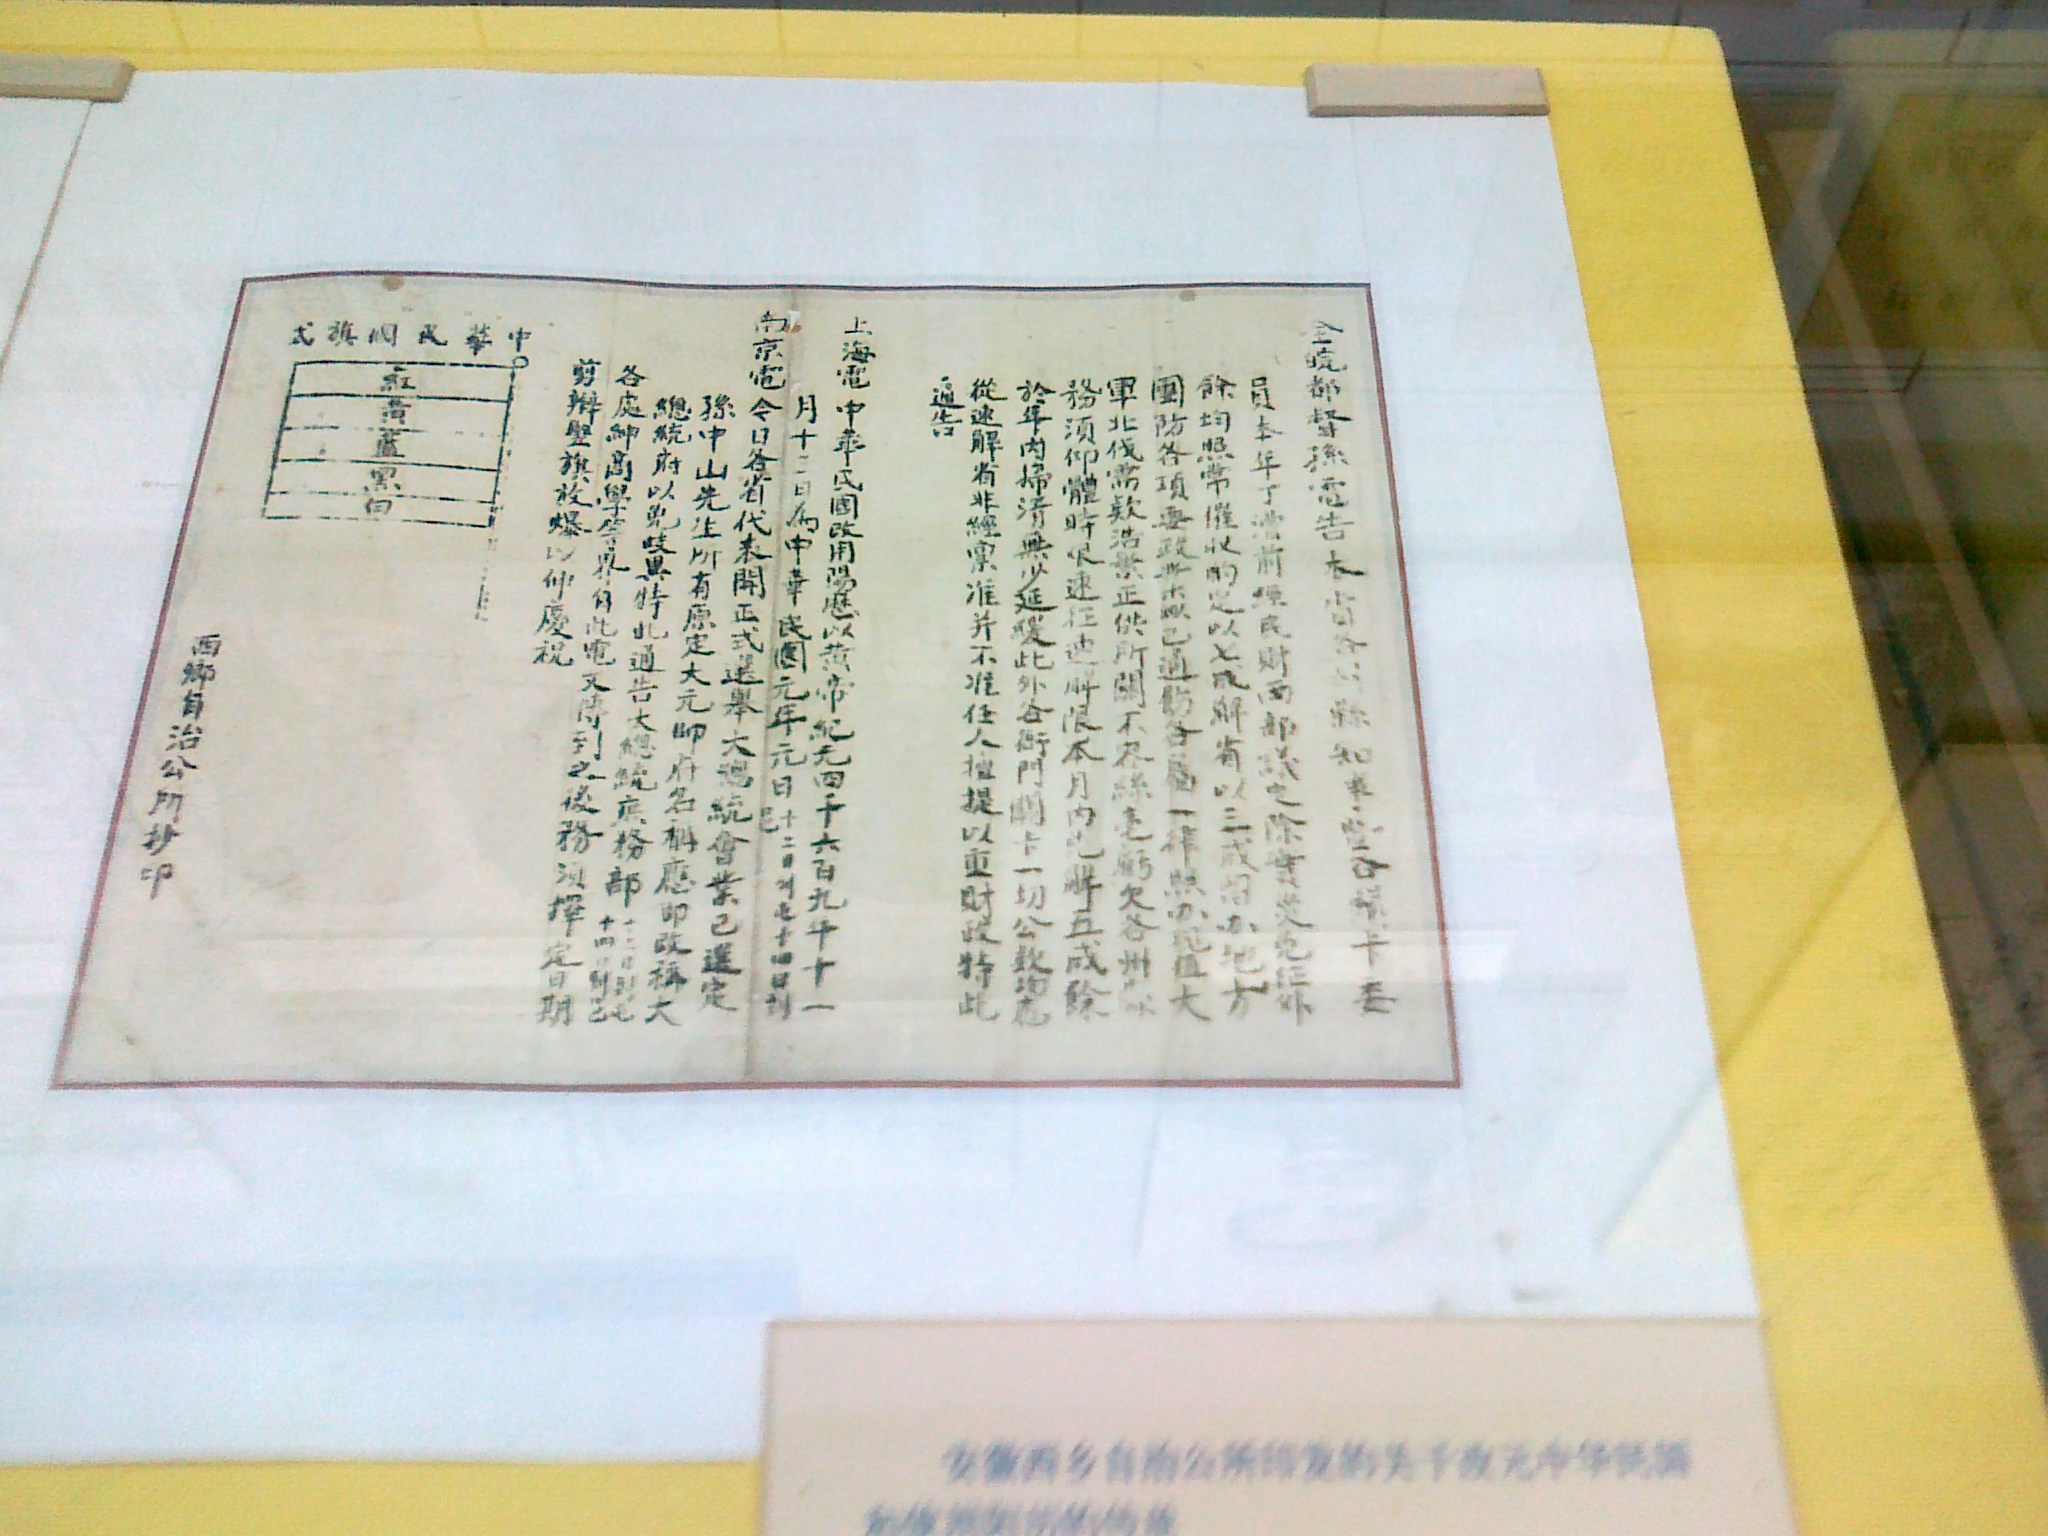 全皖都督孫電告 本省各州縣知事
員本年丁漕前經民財两部議定除實災免征外
餘均照常催收的定以七成解省以三成留办地方
團防各項要政業已通飭各屬一律照办現值大
軍北伐需款浩繁正供所關不容絲毫虧欠各州縣
務須仰體時艱速征速解限本月内先解五成餘
於年内掃清無少延緩此外各衙門關卡一切公款均應
從速解省非經稟准并不准任人擅提以重財政特此
通告
上海電 中華民國改用陽歷以黄帝紀元四千六百九年十一
月十三日為中華民國元年元日
南京電 今日各省代表開正式選舉大總統會業已選定
孫中山先生所有原定大元帥府名稱應即改稱大
總統府以免歧異特此通告大總統庶務部
各處紳商學等界自此電文傳到之後務須擇定日期
剪辮竪旗放爆以伸慶祝
中華民國旗式
紅
黄
藍
黑
白
西鄉自治公所抄印
安徽西乡自治公所印发的关于改元中华民国